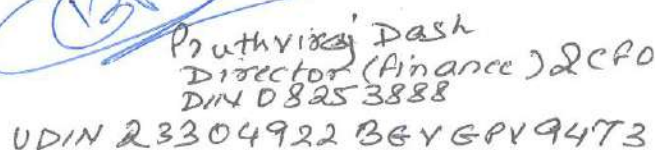 Pruthviraj Dash
Director (Finance) & CFO
DIN 08253888
UDIN 23304922BGVGPV9473